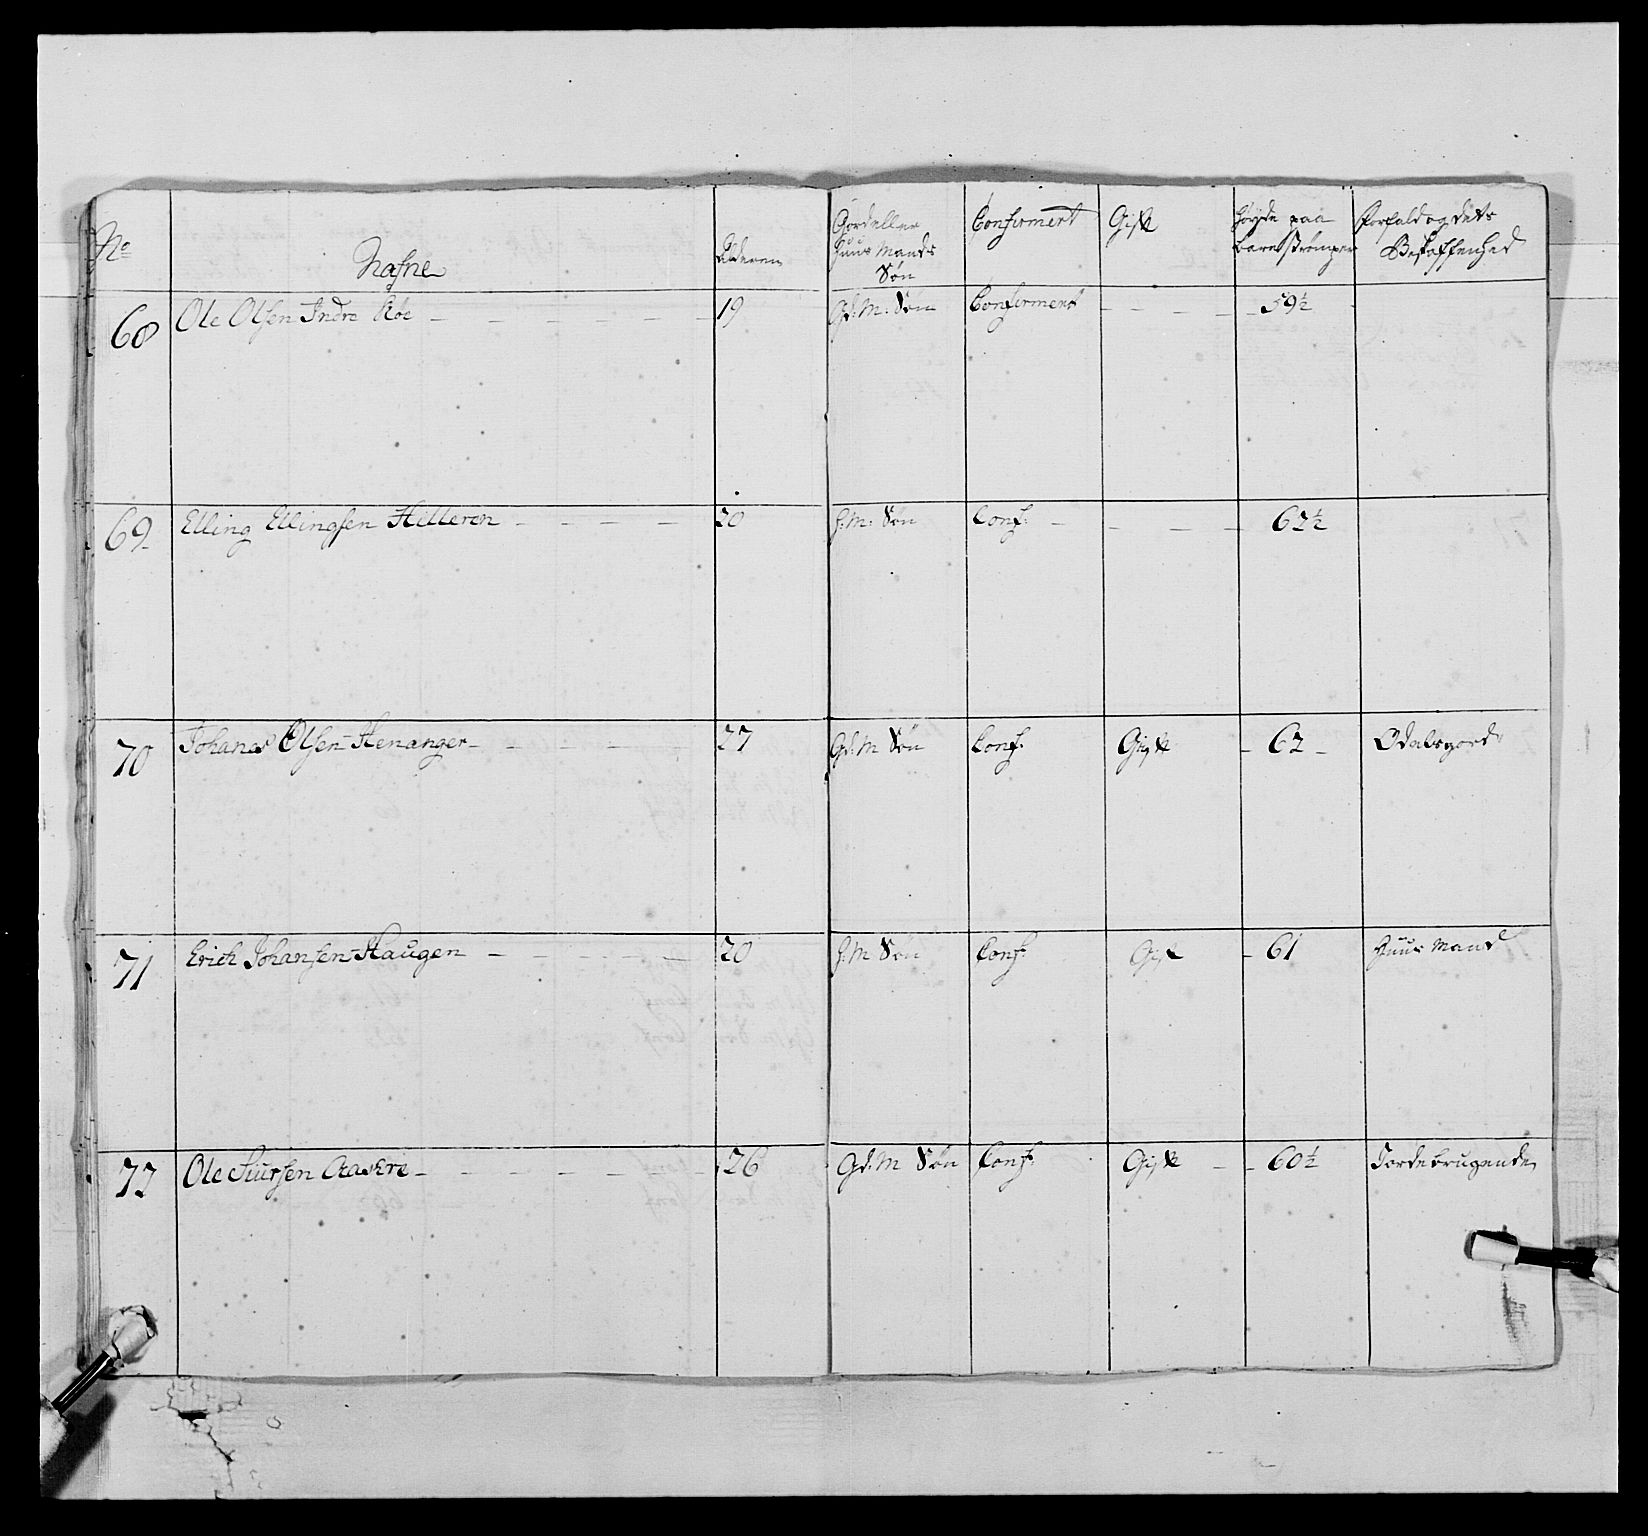 No Nafne Alderen Gordeller Huus Mands Søn Confirmert Gift Høyde paa bare Strømper Forfald og dets Beskaffenhed
68 Ole Olsen Indre Röe 19 Gd. M. Søn Confirmert 59½
69 Elling Ellingsen Hilleren 20 H. M. Søn Conf: 62½
70 Johanes Olsen Henanger 27 Gd. M Søn Conf: Gift 62 Odelsgord
71 Erich Johansen Haugen 20 H. M Søn Conf: Gift 61 Huus Mand
72 Ole Siursen 26 Gd. M Søn Conf: Gift 60½ Jordebrugende